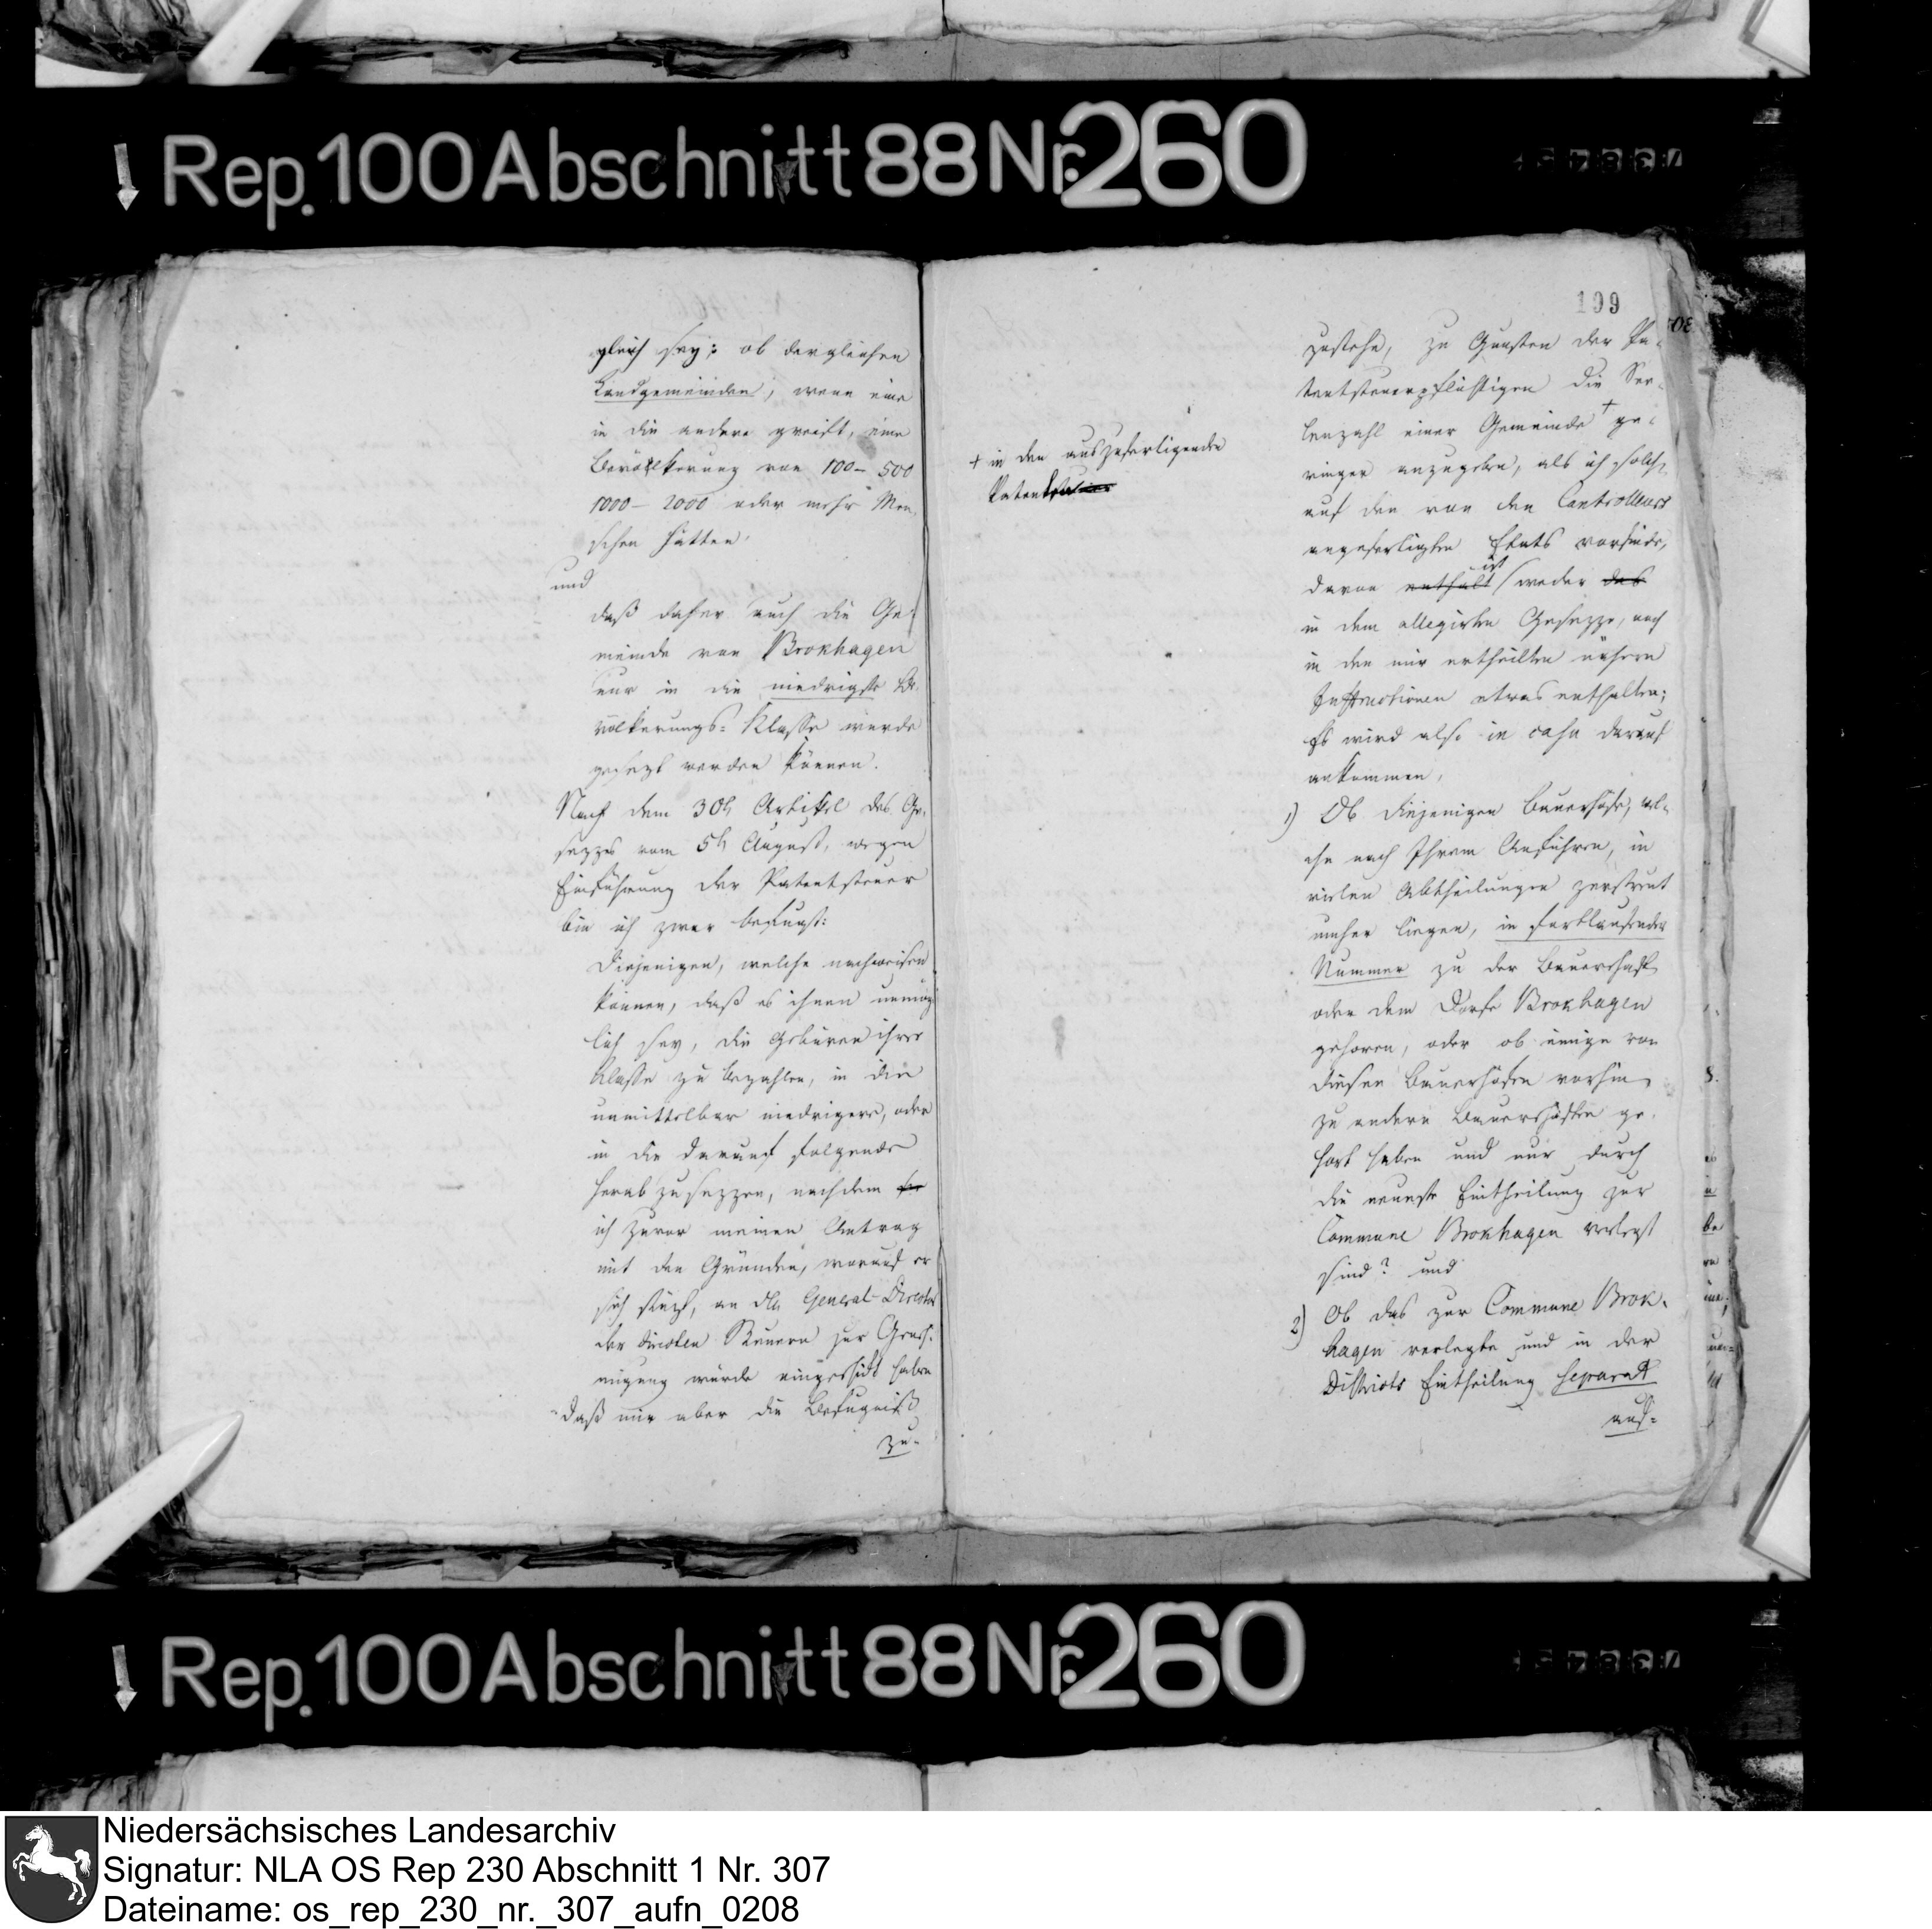 Rep. 100 Abschnitt 88 Nr. 260
gleich sey; ob dergleichen
Landgemeinden, wenn eine
in die andere greift, eine
Bevölkerung von 100 – 500
1000 – 2000 oder mehr Men-
schen hätten,
und
daß daher auch die Ge-
meinde von Brokhagen
nur in die niedrigste Be-
völkerungs-Klasse werde
gesezt werden können.
Nach dem 30ten Artikel des Ge-
sezzes vom 5ten August, wegen
Einführung der Patentsteuer
bin ich zwar befugt:
diejenigen, welche nachweisen
können, daß es ihnen unmög-
lich sey, die Gebüren ihrer
Klasse zu bezahlen, in die
unmittelbar niedrigere, oder
in die darauf folgende
herabzusezzen, nachdem
ich zuvor meinen Antrag
mit den Gründen, worauf er
sich stüzt, an den General-Director
der directen Steuern zur Geneh-
migung würde eingeschickt haben
daß mir aber die Befugniß
zu-
199
zustehe, zu Gunsten der Pa-
tentsteuerpflichtigen die See-
lenzahl einer Gemeinde + ge-
ringer anzugeben, als ich solche
auf den von den Controlleurs
angefertigten Etats vorfinde,
davon enthält ist weder das
in dem allegirten Gesezze, noch
in den mir ertheilten nähern
Instructionen etwas enthalten;
Es wird also in casu darauf
ankommen,
+ in den auszufertigenden
Patent
1) Ob diejenigen Bauerhöfe, wel-
che nach Ihrem Anführen, in
vielen Abtheilungen zerstreut
umher liegen, in fortlaufender
Nummer zu der Bauerschaft
oder dem Dorfe Brokhagen
gehören, oder ob einige von
diesen Bauerhöfen vorhin
zu andern Bauerschaften ge-
hört haben und nur durch
die neueste Eintheilung zur
Commune Brokhagen verlegt
sind? und
2) Ob das zur Commune Brok-
hagen verlegte und in der
Districts Eintheilung separat
auf-
Rep. 100 Abschnitt 88 Nr. 260
Niedersächsisches Landesarchiv
Signatur: NLA OS Rep 230 Abschnitt 1 Nr. 307
Dateiname: os_rep_230_nr._307_aufn_0208